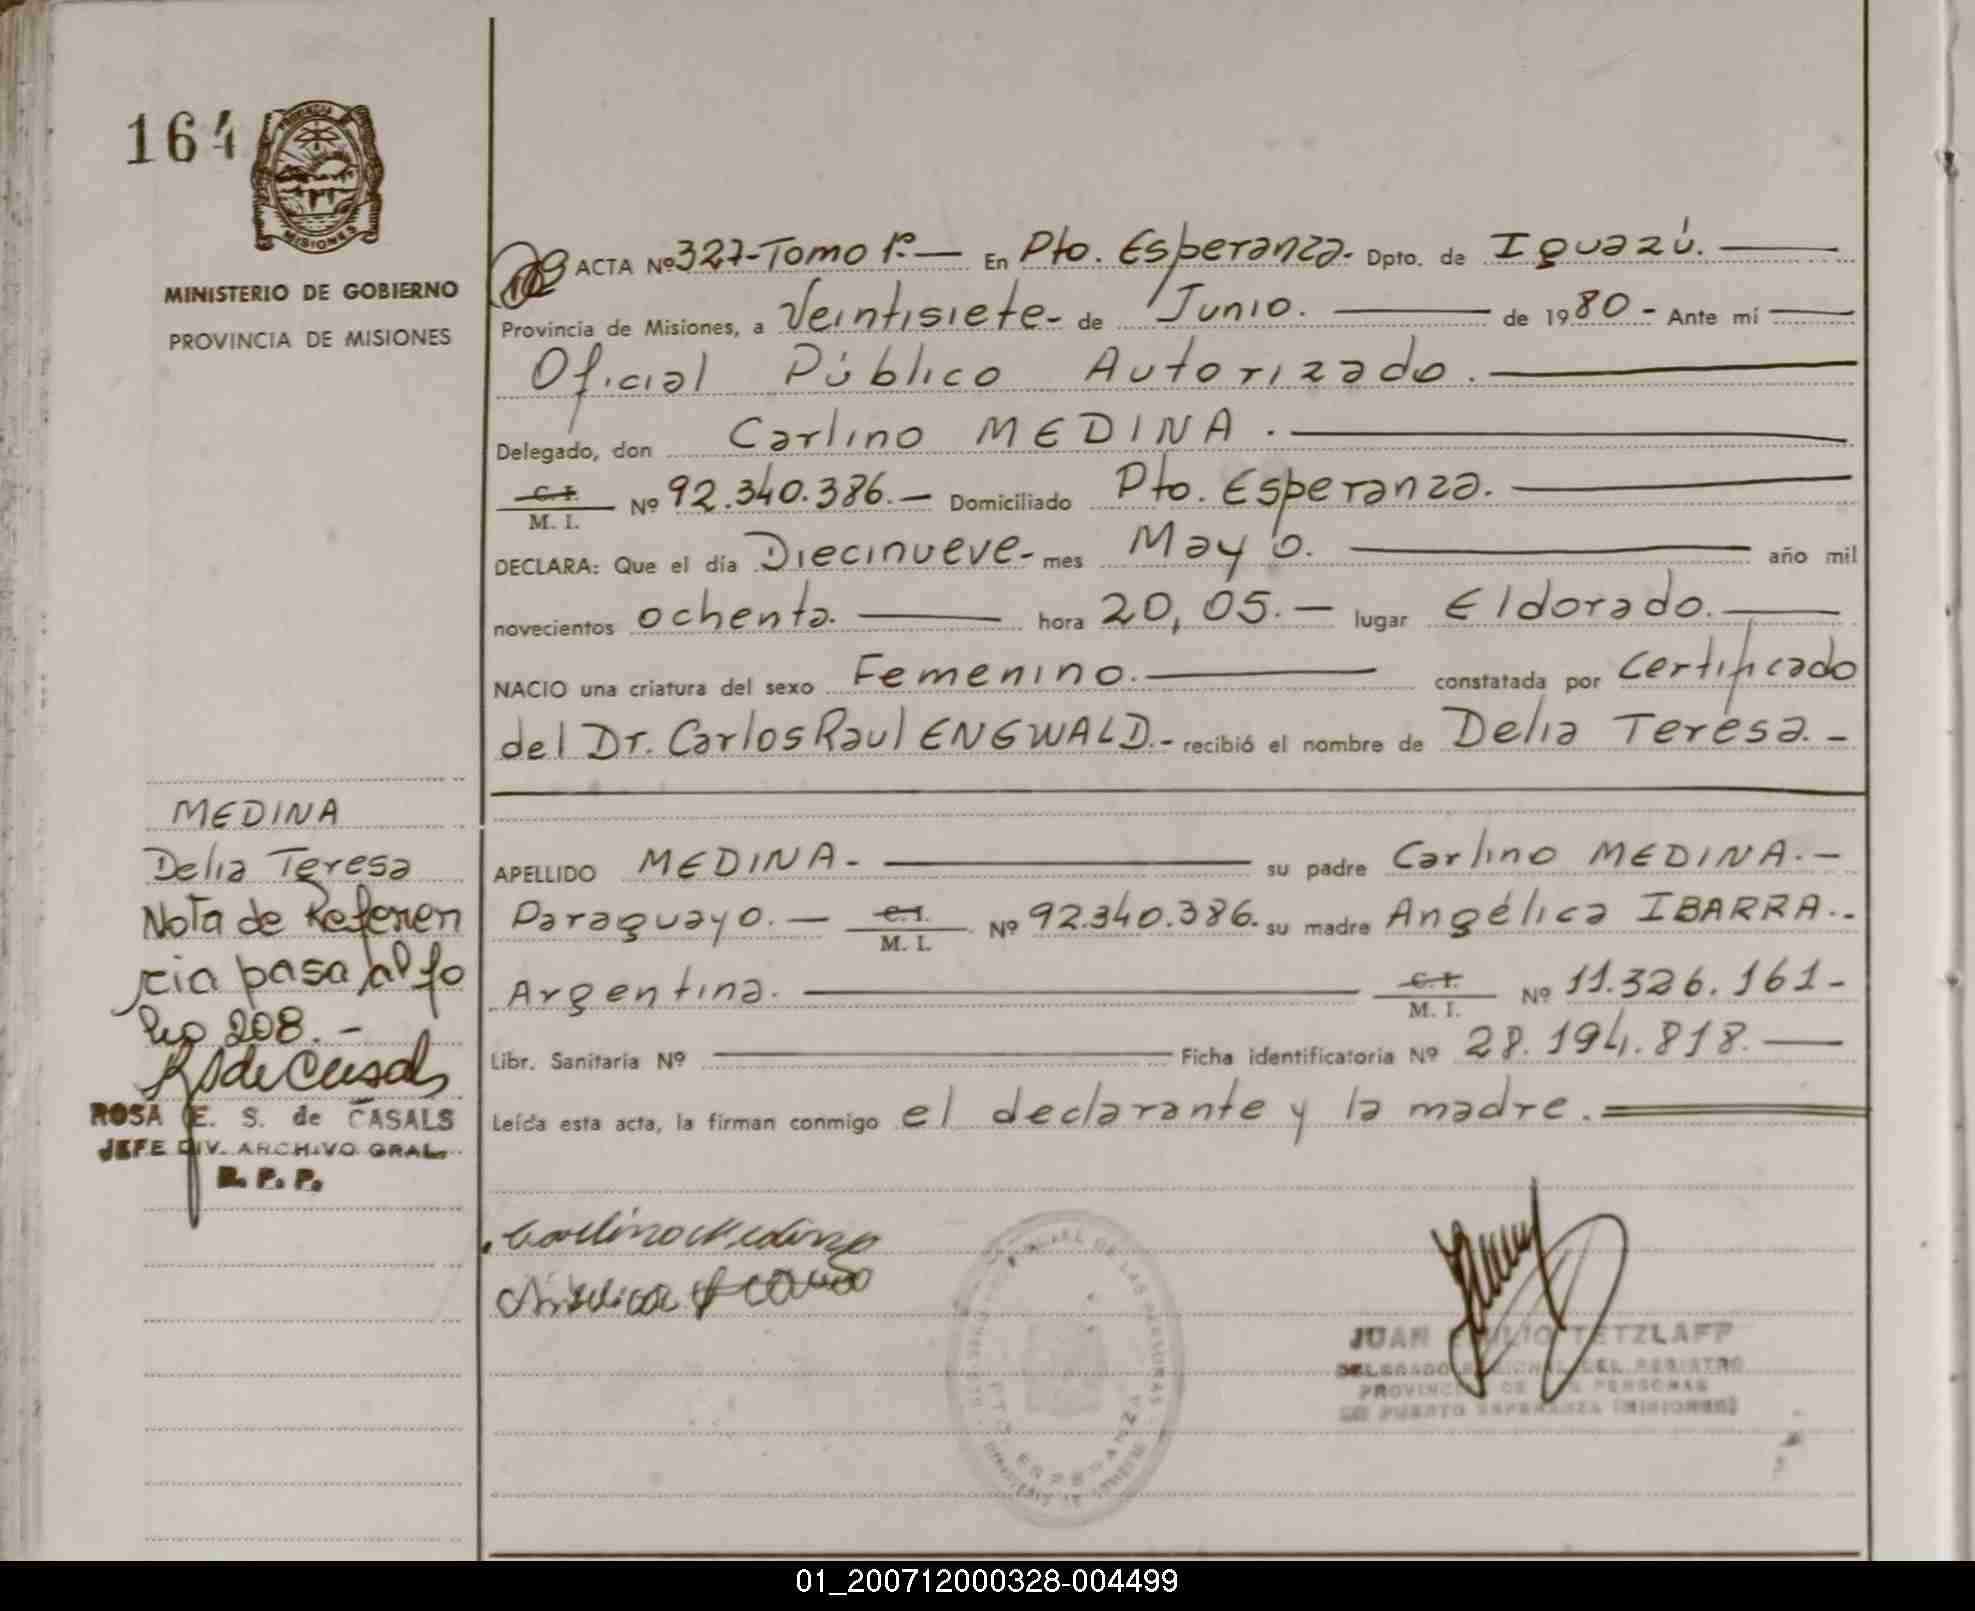 164
PROVINCIA
MISIONES
MINISTERIO DE GOBIERNO
PROVINCIA DE MISIONES
ACTA Nº 327-Tomo 1º.— En Pto. Esperanza- Dpto. de Iguazú.—
Provincia de Misiones, a Veintisiete- de Junio.— de 1980- Ante mí —
Oficial Público Autorizado.—
Delegado, don Carlino MEDINA.—
C. I. / M. I. Nº 92.340.386.— Domiciliado Pto. Esperanza.—
DECLARA: Que el día Diecinueve- mes Mayo.— año mil
novecientos ochenta.— hora 20,05.— lugar Eldorado.—
NACIO una criatura del sexo Femenino.— constatada por Certificado
del Dr. Carlos Raul ENGWALD.- recibió el nombre de Delia Teresa.-
APELLIDO MEDINA-— su padre Carlino MEDINA.-
Paraguayo.— C. I. / M. I. Nº 92.340.386. su madre Angélica IBARRA.-
Argentina.— C. I. / M. I. Nº 11.326.161-
Libr. Sanitaria Nº — Ficha identificatoria Nº 28.194.818.—
Leída esta acta, la firman conmigo el declarante y la madre.=
MEDINA
Delia Teresa
Nota de Referen
cia pasa al fo
lio 208.-
RSdeCasals
ROSA E. S. de CASALS
JEFE DIV. ARCHIVO GRAL.
R. P. P.
Carlino Medina
JUAN EMILIO TETZLAFF
DELEGADO REGIONAL DEL REGISTRO
PROVINCIAL DE LAS PERSONAS
EN PUERTO ESPERANZA (MISIONES)
DE LAS PERSONAS
PTO. ESPERANZA
MINISTERIO DE GOBIERNO
01_200712000328-004499